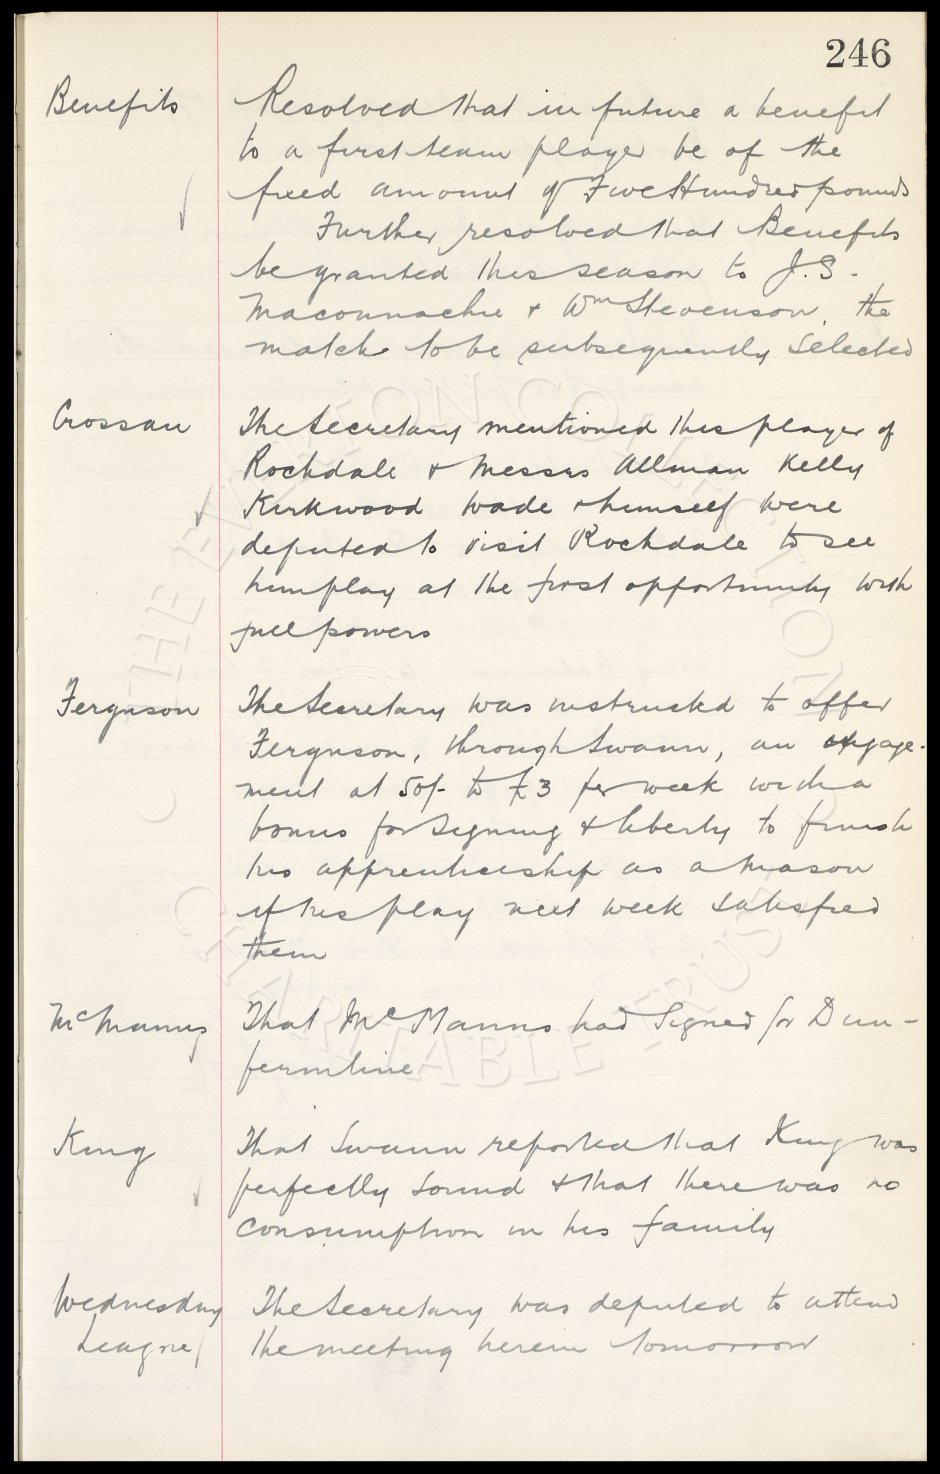 246
Benefits
Resolved that in future a benefit
to a first team player be of the
fixed amount of Five Hundred pounds
Further resolved that Benefits
be granted this season to J.S.
Maconnachie & Wm Stevenson, the
match to be subsequently selected
Crossan
The Secretary mentioned this player of
Rochdale & Messrs Allman Kelly
Kirkwood Wade & himself were
deputed to visit Rochdale to see
him play at the first opportunity with
full powers
Ferguson
The Secretary was instructed to offer
Ferguson, through Swann, an engage-
ment at 50/- to £3 per week with a
bonus for signing & liberty to finish
his apprenticeship as a mason
if his play next week satisfied
them
McManus
That McManus had signed for Dun-
fermline
King
That Swann reported that King was
perfectly sound & that there was no
consumption in his family
Wednesday
League
The Secretary was deputed to attend
the meeting herein tomorrow
THE EVERTON COLLECTION
CHARITABLE TRUST